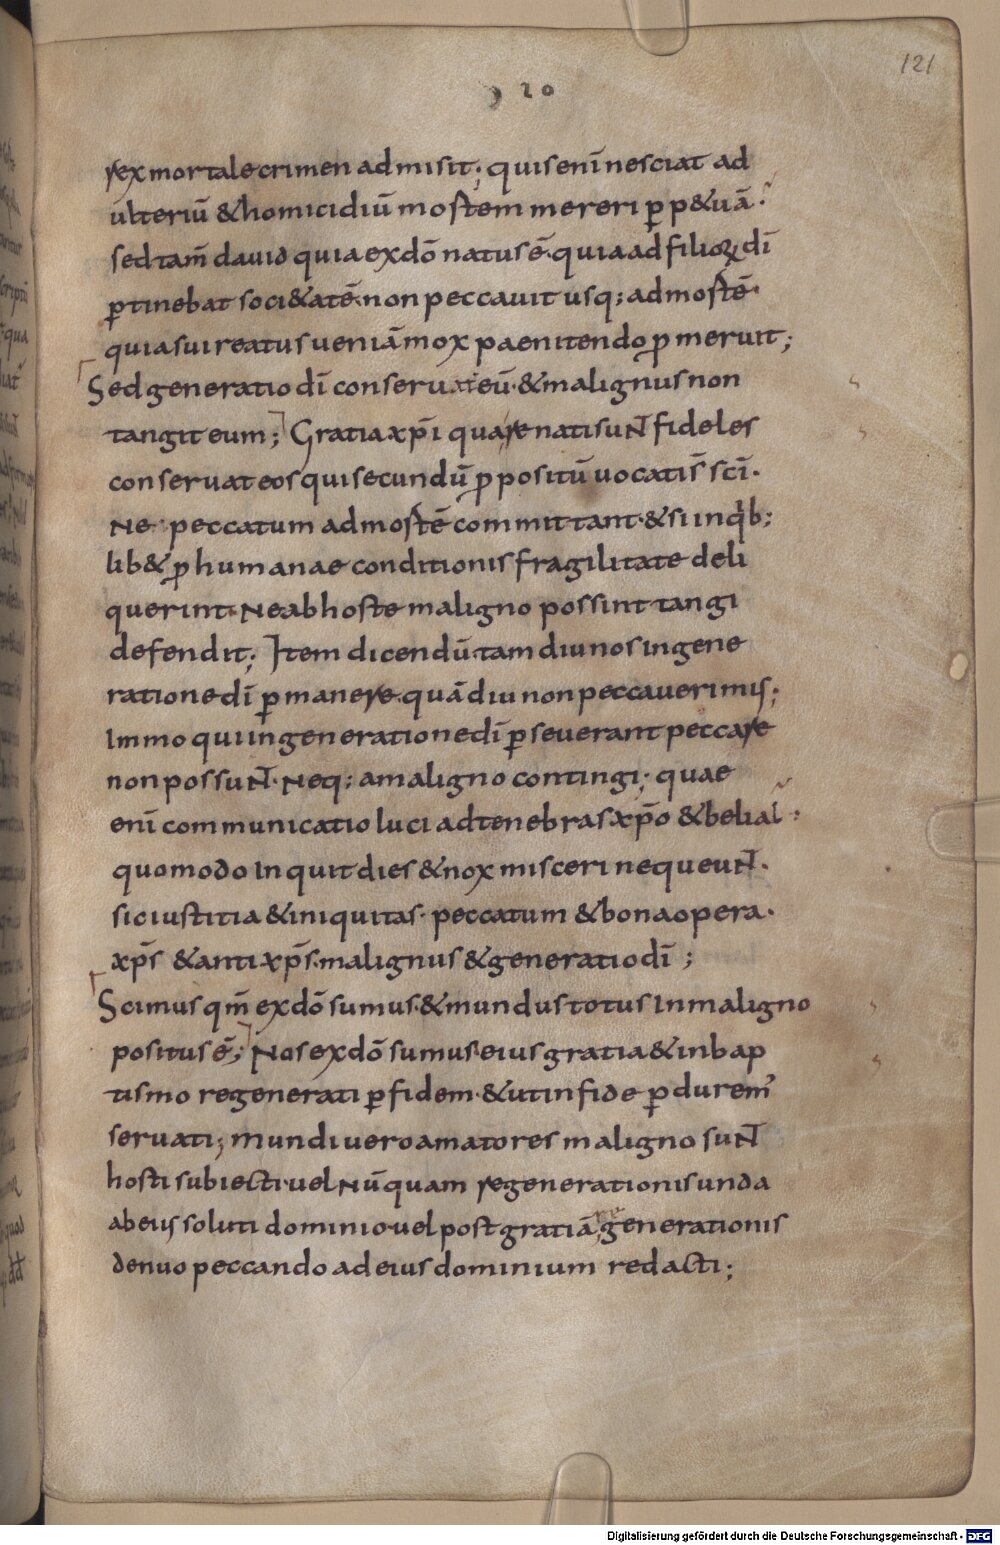 121
120
rex mortale crimen admisit; quis enī nesciat ad
ulteriū & homicidiū mortem mereri ꝑp&uā.
sed tam̄ david quia ex dō natus ē. quia ad filioꝝ dī
ꝑtinebat soci&atē. non peccavit usq; ad mortē.
quia sui reatus veniā mox paenitendo ꝓmeruit;
Sed generatio dī conservat eū. & malignus non
tangit eum; Gratia xp̄i qua renati suNT fideles
conservat eos qui secundū ꝓpositū vocati s̄ sc̄i.
Ne peccatum ad mortē committant. & si in qḃ;
lib& ꝑ humanae conditionis fragilitate deli
querint. Ne ab hoste maligno possint tangi
defendit; Item dicendū. tam diu nos in gene
ratione dī ꝑmanere. quādiu non peccaverimis;
Immo qui in generatione dī ꝑseverant peccare
non possuNT. Neq; a maligno contingi; quae
enī communicatio luci ad tenebras. xp̄o & belial.
quomodo inquit dies & nox misceri nequeuNT.
sic iustitia & iniquitas. peccatum & bona opera.
xp̄s & antixp̄s. malignus & generatio dī;
Scimus qm̄ ex dō sumus. & mundus totus in maligno
positus ē; Nos ex dō sumus. eius gratia & in bap
tismo regenerati ꝑ fidem. & ut in fide ꝑdurem᾽
servati; mundi vero amatores maligno suNT
hosti subiecti. vel Nūquam regenerationis unda
ab eius soluti dominio. vel post gratiā regenerationis
denuo peccando ad eius dominium redacti;
Digitalisierung gefördert durch die Deutsche Forschungsgemeinschaft - DFG